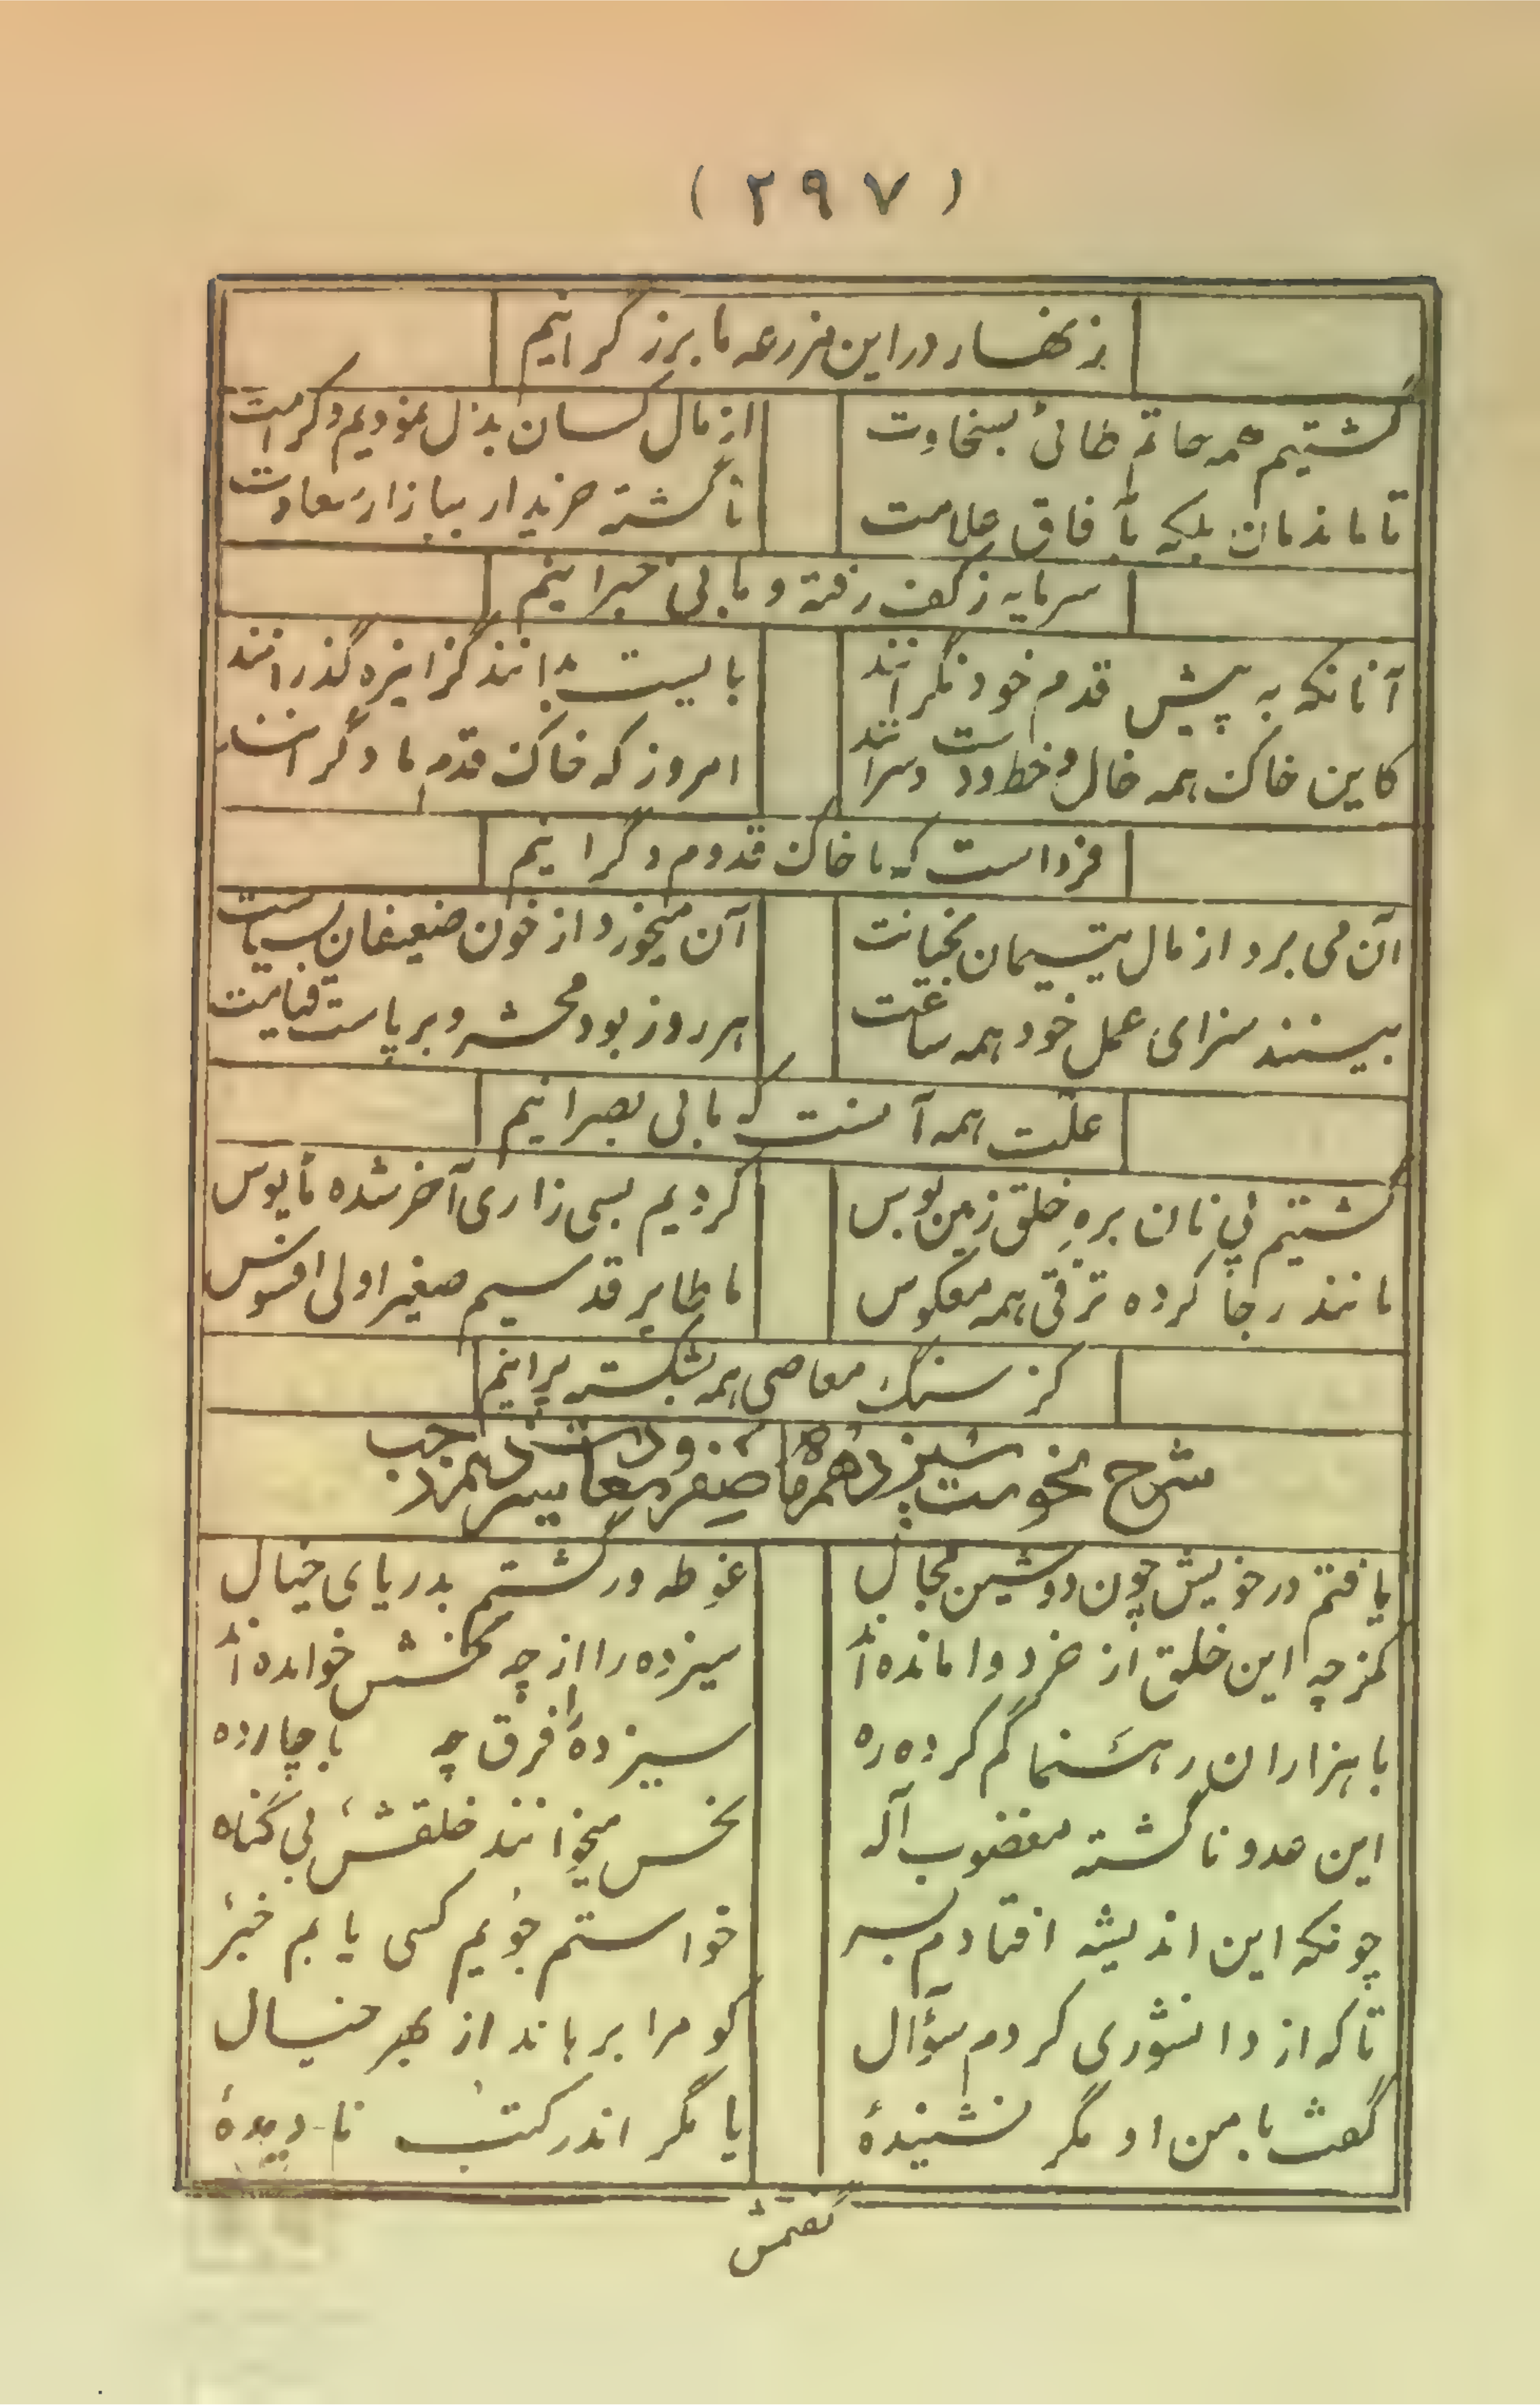 (۲۹۷)
در این مزرعه ما برزگرانیم
گشتیم همه حاتم طائی بسخاوت
از مال کسان بذل نمودیم و کرامت
تا ماند مان بلکه بآفاق علامت
ناگشته خریدار ببازار سعادت
سرمایه ز کف رفته و ما بی خبرانیم
آنانکه به پیش قدم خود نگرانند
بایست بدانند کز اینره گذرانند
کاین خاک همه خال و خط و دست و سرانند
امروز که خاک قدم ما دگرانند
فرداست که ما خاک قدوم دگرانیم
آن می برد از مال یتیمان بخیانت
آن میخورد از خون ضعیفان
بینند سزای عمل خود همه ساعت
هر روز بود محشر و برپاست قیامت
علّت همه آنست که ما بی بصرانیم
گشتیم پی نان بره خلق زمین بوس
کردیم بسی زاری آخر شده مأیوس
مانند رجا کرده ترقی همه معکوس
ما طایر قدسیم صغیر اولی افسوس
کز سنگ معاصی همه بشکسته پرانیم
شرح نحوست سیزدهم ماه صفر و
یافتم در خویش چون دوشین مجال
غوطه ور گشتم بدریای خیال
کز چه این خلق از خرد وامانده اند
سیزده را از چه نحسش خوانده اند
با هزاران رهنما گم کرده ره
سیزده را فرق چه با چارده
این عدد ناگشته مغضوب آله
نحس میخوانند خلقش بی گناه
چونکه این اندیشه افتادم بسر
خواستم جویم کسی یابم خبر
تا که از دانشوری کردم سؤال
کو مرا برهاند از بهر خیال
گفت با من او مگر نشنیدهٔ
یا مگر اندر کتب نادیدهٔ
گفتمش